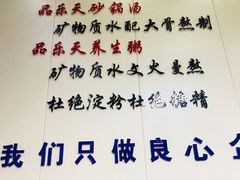 品乐天砂锅汤
矿物质水配大骨熬制
品乐天养生粥
矿物质水文火曼熬
杜绝淀粉杜绝糖精
我们只做良心企